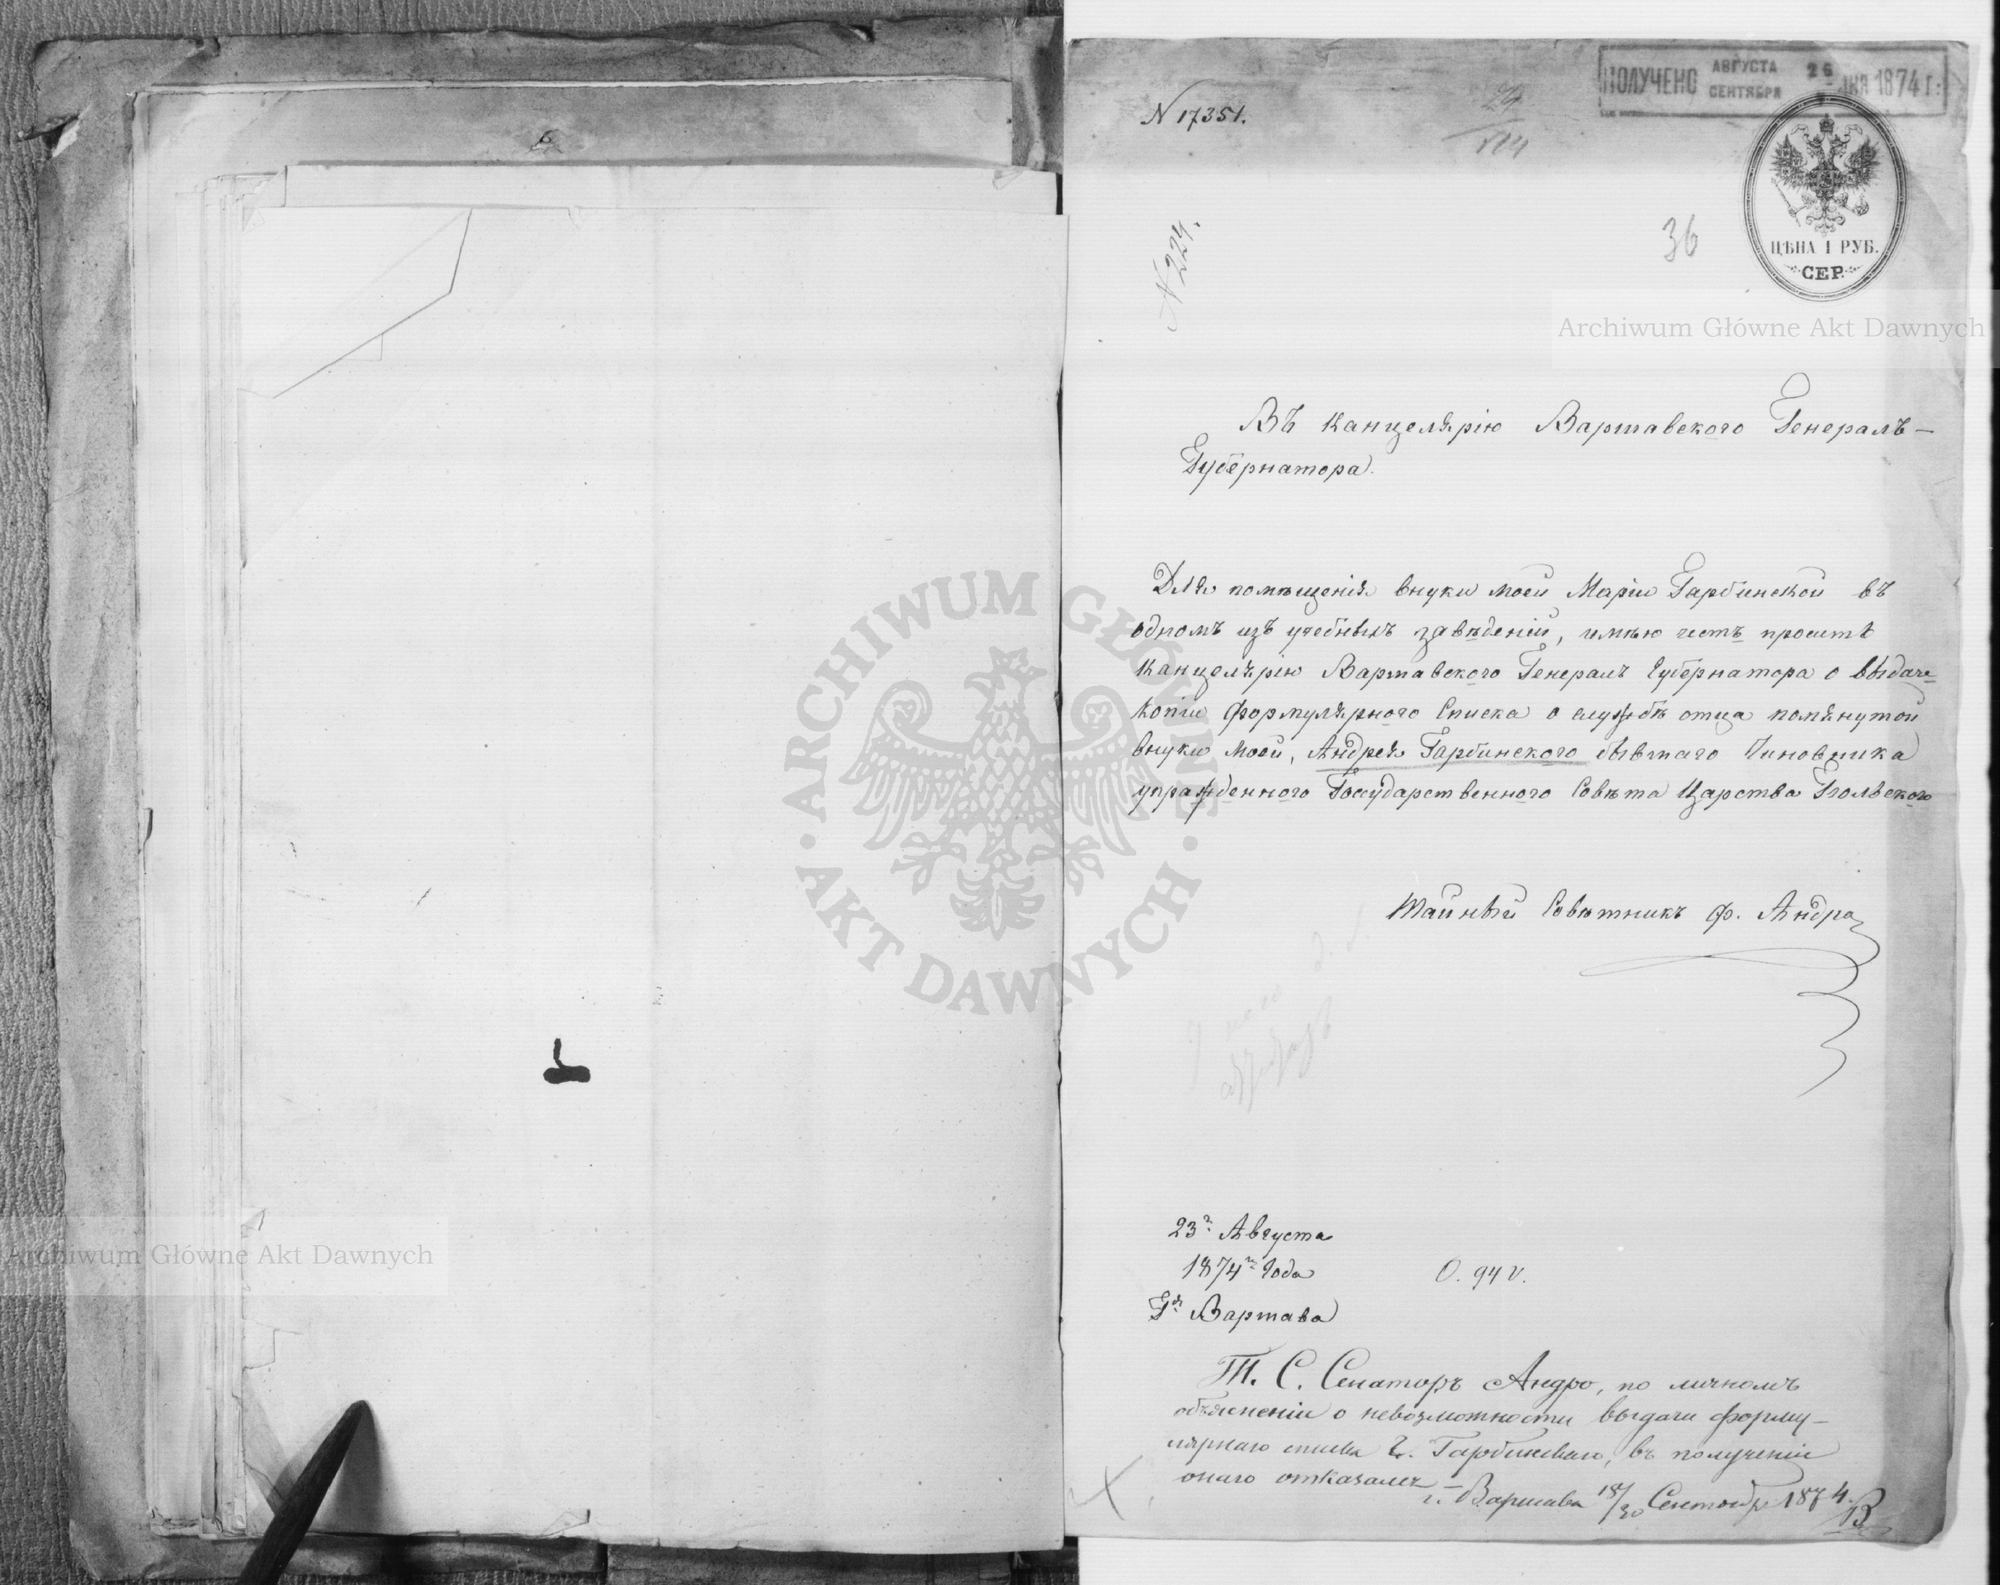 ПОЛУЧЕНО АВГУСТА СЕНТЯБРЯ 26 ДНЯ 1874 Г:
N 17351.
29
VIII
N 224.
36
ЦѢНА 1 РУБ.
СЕР.
Archiwum Główne Akt Dawnych
Въ Канцелярію Варшавского Генералъ-
Губернатора.
Для помѣщенія внуки моей Маріи Гарбинской въ
одномъ изъ учебныхъ завѣденій, имѣю честь просить
Канцелярію Варшавского Генералъ Губернатора о выдаче
копіи Формулярного Списка о службѣ отца помянутой
внуки моей, Андрея Гарбинского бывшаго Чиновника
упражденного Государственного Совѣта Царства Польского
ARCHIWUM GŁÓWNE AKT DAWNYCH
Тайный Совѣтникъ ф. Андро
23го Августа
1874го Года
Гдъ Варшава
О. 94 v.
Т. С. Сенаторъ Андро, по личномъ
объясненіи о невозможности выдачи форму-
лярнаго списка г. Гарбинскаго, въ полученіи
онаго отказался —
г. Варшава 18/30 Сентября 1874.
Archiwum Główne Akt Dawnych